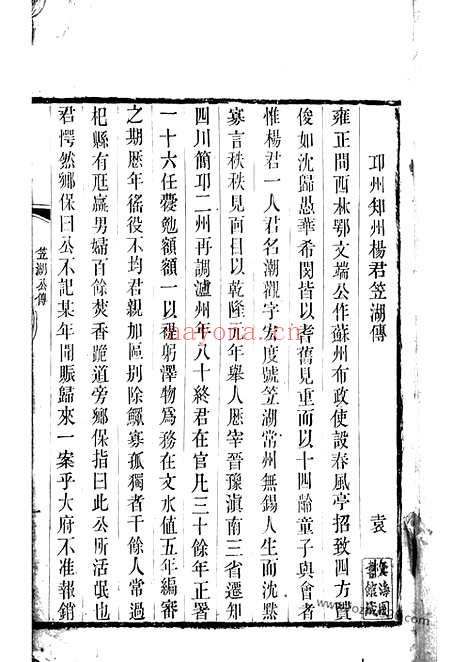 邛州知州楊君笠湖傳
袁
雍正間西林鄂文端公作蘇州布政使設春風亭招致四方賢
俊如沈歸愚華希閔皆以耆舊見重而以十四齡童子與會者
惟楊君一人君名潮觀字宏度號笠湖常州無錫人生而沈默
寡言秩秩見面目以乾隆元年舉人歷宰晉豫滇南三省遷知
四川簡邛二州再調瀘州年八十終君在官凡三十餘年正署
一十六任虆勉額額一以裎躬澤物為務在文水值五年編審
之期歷年徭役不均君親加區別除鰥寡孤獨者千餘人常過
杞縣有尫羸男婦百餘焚香跪道旁鄉保指曰此公所活氓也
君愕然鄉保曰公不記某年閒賑歸來一案乎大府不准報銷
笠湖公傳
hayona.cn